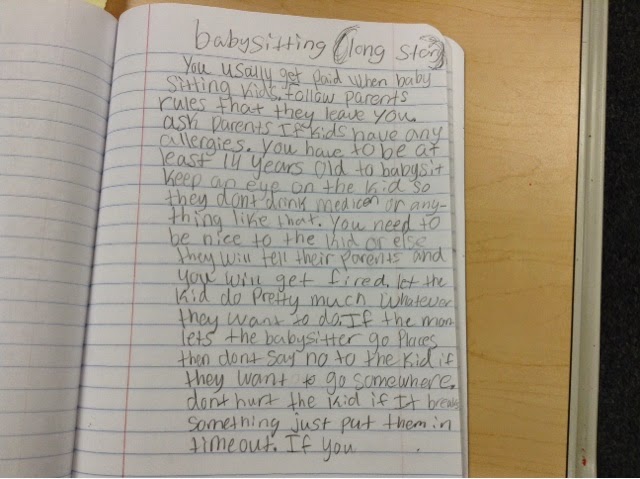 babysitting (long story)
You usally get paid when baby
sitting kids. follow parents
rules that they leave you.
ask parents If kids have any
allergies. You have to be at
least 14 years old to babysit
keep an eye on the kid so
they dont drink medicen or any-
thing like that. You need to
be nice to the kid or else
they will tell their parents and
you will get fired. let the
kid do pretty much whatever
they want to do. If the mom
lets the babysitter go places
then dont say no to the kid if
they want to go somewhere.
dont hurt the kid if It breaks
something just put them in
timeout. If you